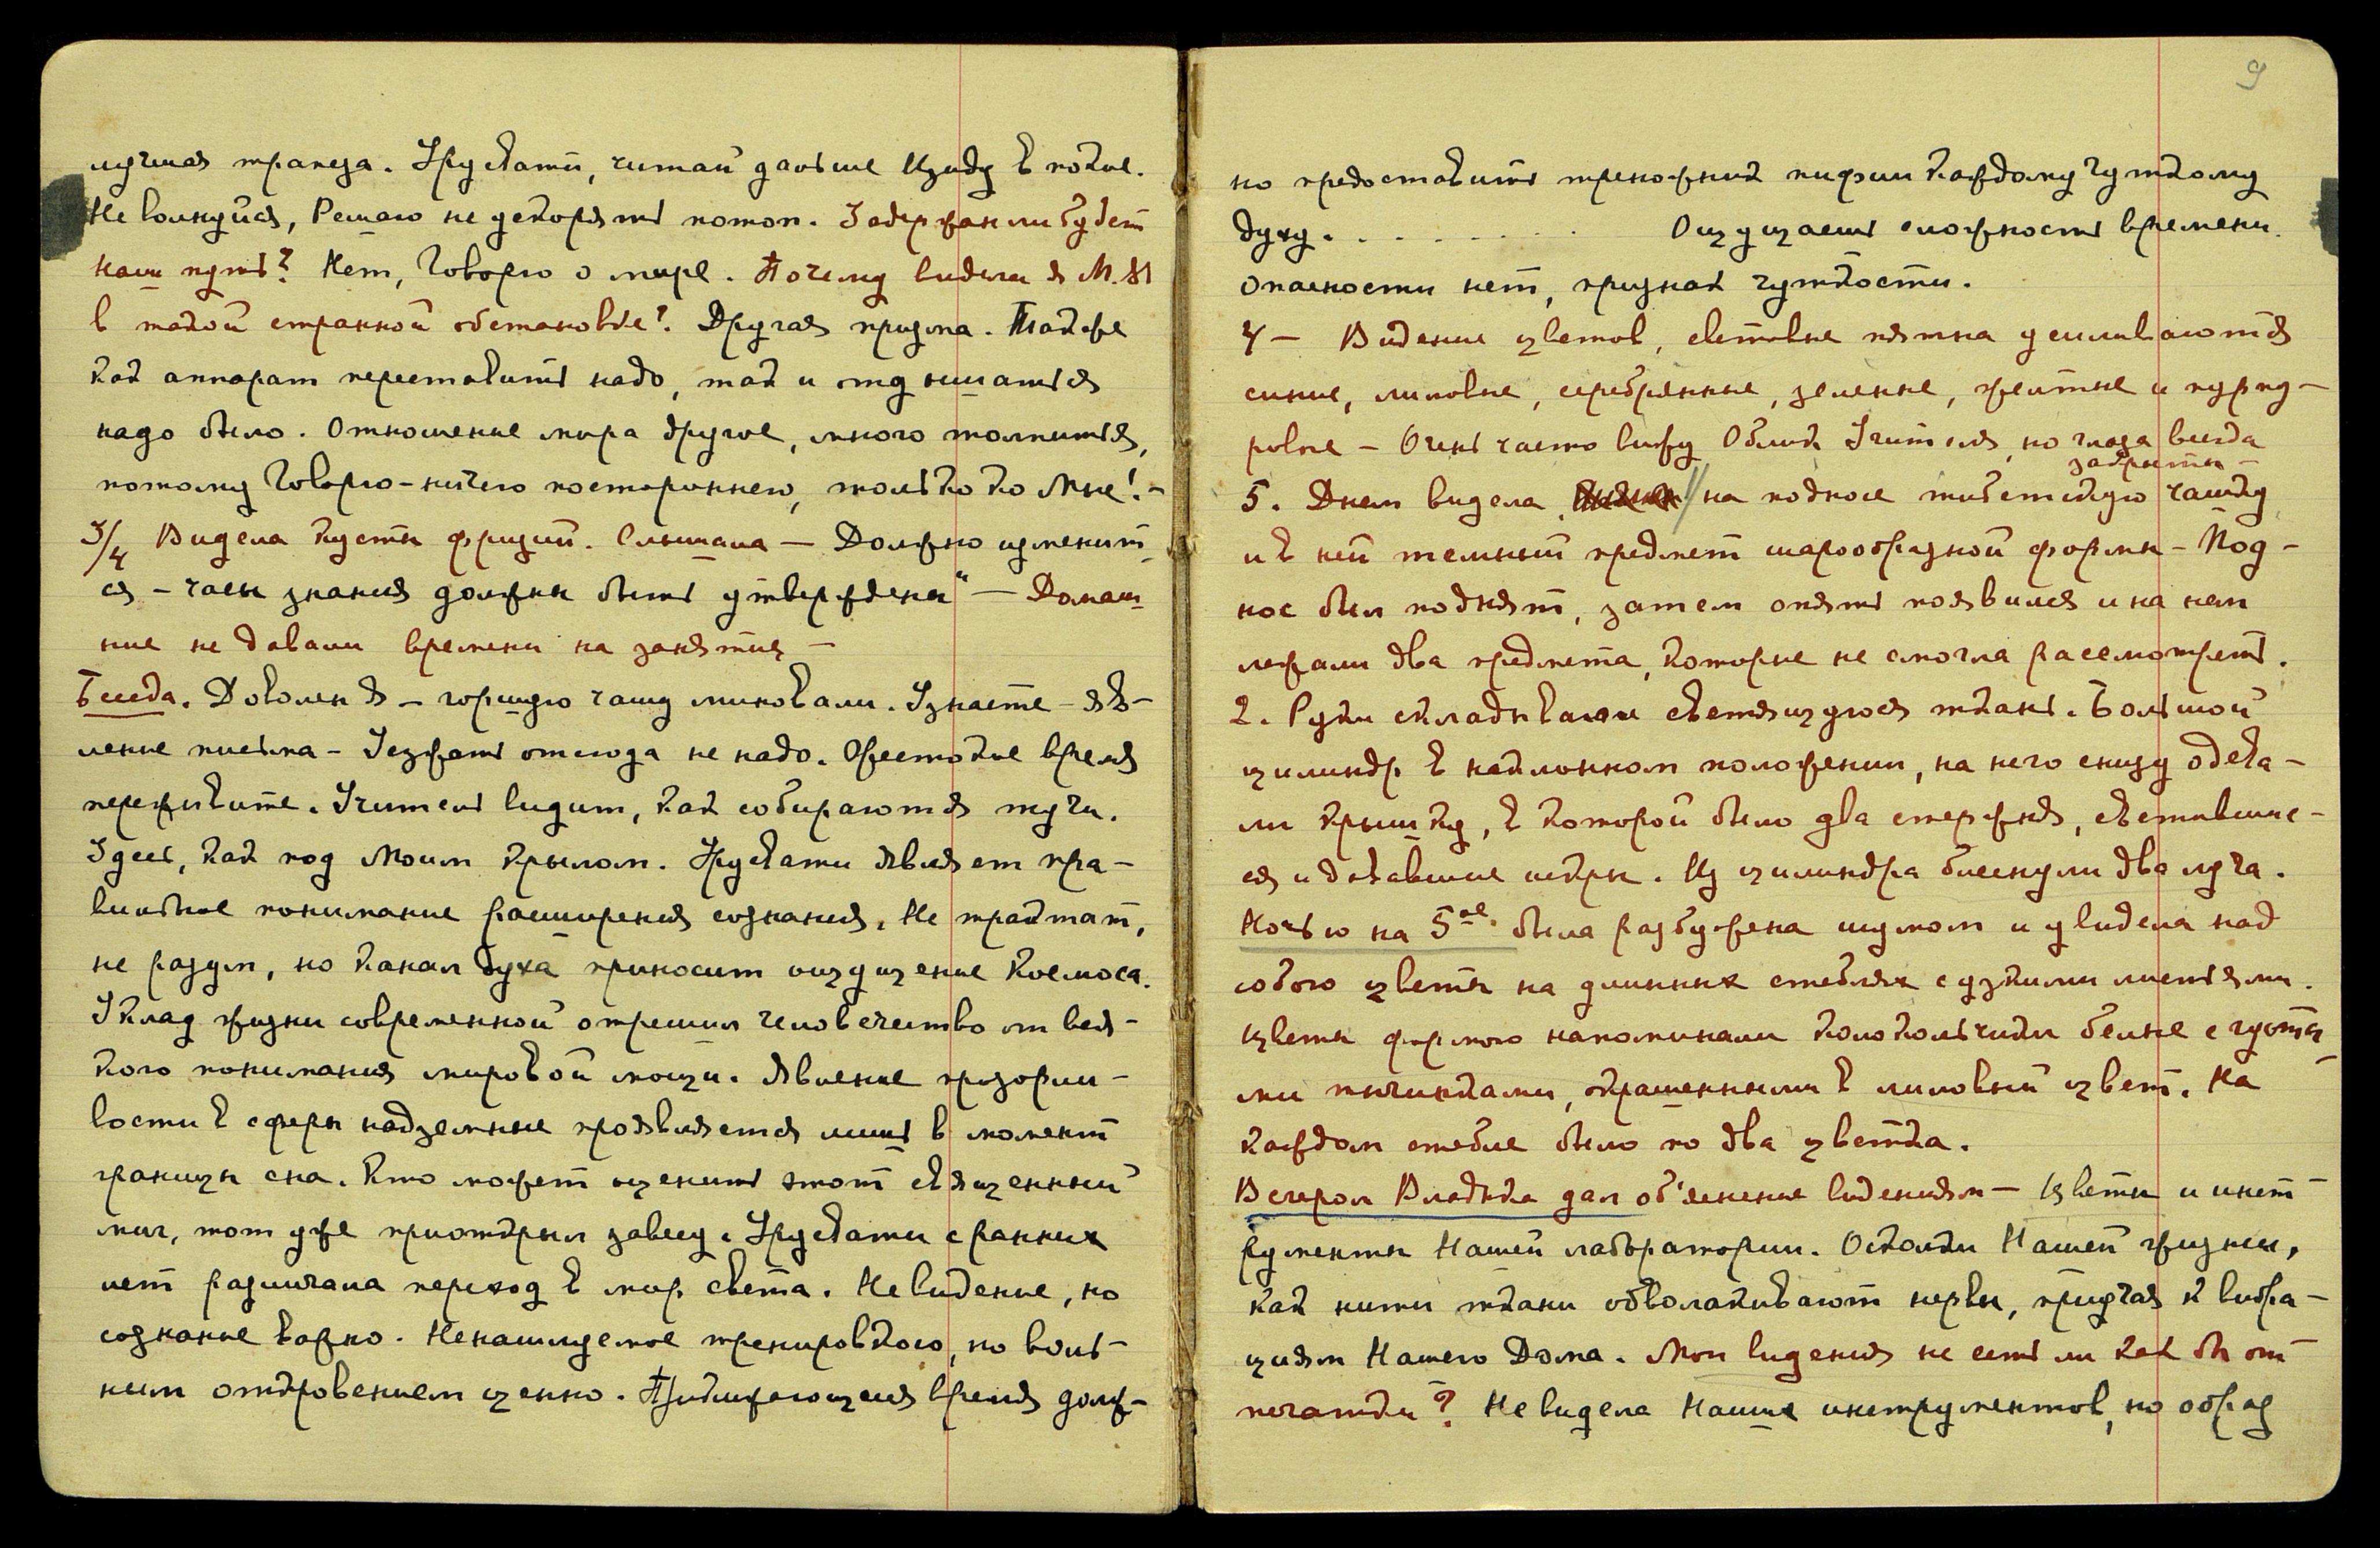 лучшая трапеза. Урусвати, читай дальше Изиду в покое.
Не волнуйся, Решаю не ускорять потоп. Задержан ли будет
наш путь? Нет, Говорю о мире. Почему видела я М. М.
в такой странной обстановке? Другая призма. Также
как аппарат переставить надо, так и
надо было. Отношение мира другое, много толпится,
потому Говорю – ничего постороннего, только ко Мне! –
3/4 Видела кусты фризий. Слышала – Должно изменить
ся – часы знания должны быть утверждены" – Домаш
ние не давали времени на занятия –
Беседа. Доволен Я – горшую чашу миновали. Узнаете – яв-
ление письма – Уезжать отсюда не надо. Жестокое время
переживите. Учитель видит, как собираются тучи.
Здесь, как под Моим Крылом. Урусвати являет пра-
вильное понимание расширения сознания. Не трактат,
не разум, но канал духа приносит ощущение Космоса.
Уклад жизни современной отрешил человечество от вся-
кого понимания мировой мощи. Явление прозорли-
вости в сферы надземные проявляется лишь в момент
границы сна. Кто может оценить этот священный
миг, тот уже приоткрыл завесу. Урусвати с ранних
лет различала переход в мир света. Не видение, но
сознание важно. Ненашлуемое тренировкою, но воль-
ным откровением ценно. Приближающееся время долж-
9
но предоставить треножник пифии каждому чуткому
духу. . . . . . . . . Ощущаешь сложность времени.
опасности нет, признак чуткости.
4 – Видение цветов, световые пятна усиливаются
синие, лиловые, серебряные, зеленые, желтые и пурпу-
ровые – Очень часто вижу Облик Учителя, но глаза всегда
закрыты –
5. Днем видела на подносе тибетскую чашку
и в ней темный предмет шарообразной формы – Под-
нос был поднят, затем опять появился и на нем
лежали два предмета, которые не смогла рассмотреть.
2. Руки складывали светящуюся ткань. Большой
цилиндр в наклонном положении, на него снизу одева-
ли крышку, в которой было два стержня, светившие-
ся и дававшие искры. Из цилиндра блеснули два луча.
Ночью на 5ое была разбужена шумом и увидела над
собою цветы на длинных стеблях с узкими листьями.
Цветы формою напоминали колокольчики белые с густы
ми тычинками, окрашенными в лиловый цвет. На
каждом стебле было по два цветка.
Вечером Владыка дал об'яснение видениям – Цветы и инст-
рументы Нашей лаборатории. Осколки Нашей жизни,
как нити ткани обволакивают нервы, приучая к вибра-
циям Нашего Дома. Мои видения не есть ли как бы от
печатки? Не видела Наших инструментов, но образ